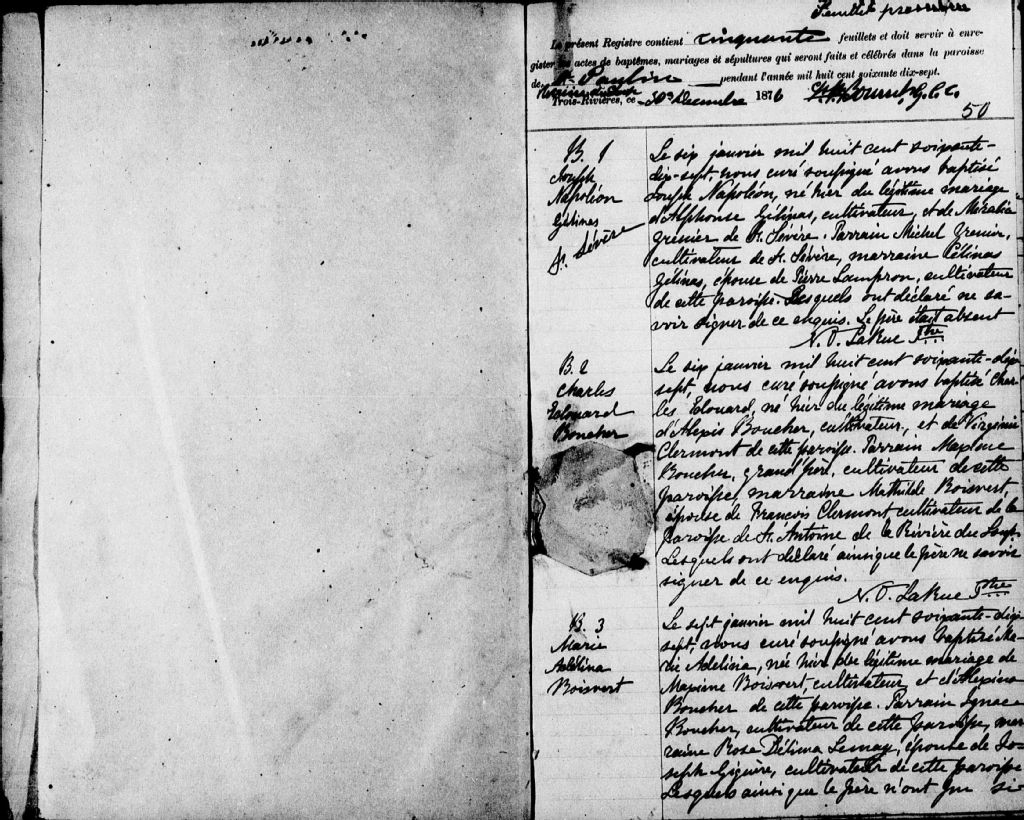 Feuillet première
Le présent Registre contient cinquante feuillets et doit servir à enre-
gistrer les actes de baptêmes, mariages et sépultures qui seront faits et célébrés dans la paroisse
de St. Paulin pendant l'année mil huit cent soixante dix-sept.
Trois-Rivières, ce 30 Décembre 1876 G. C. C.
50
B. 1
Joseph
Napoléon
Gélinas
St. Sévère
Le six janvier mil huit cent soixante-
dix-sept, nous curé soussigné avons baptisé
Joseph Napoléon, né hier du légitime mariage
d'Alphonse Gélinas, cultivateur, et de Méralie
Grenier de St. Sévère. Parrain Michel Grenier,
cultivateur de St. Sévère, marraine Célinas
Gélinas, épouse de Pierre Lampron, cultivateur
de cette paroisse. Lesquels ont déclaré ne sa-
voir signer de ce enquis. Le père était absent
N. O. LaRue Ptre
B. 2
Charles
Edouard
Boucher
Le six janvier mil huit cent soixante-dix
sept, nous curé soussigné avons baptisé Char-
les Edouard, né hier du légitime mariage
d'Alexis Boucher, cultivateur, et de Virginie
Clermont de cette paroisse. Parrain Maxime
Boucher, grand père, cultivateur de cette
paroisse, marraine Mathilde Boisvert,
épouse de François Clermont cultivateur de la
paroisse de St. Antoine de la Rivière du Loup.
Lesquels ont déclaré ainsi que le père ne savoir
signer de ce enquis.
N. O. LaRue Ptre
B. 3
Marie
Adélina
Boisvert
Le sept janvier mil huit cent soixante-dix
sept, nous curé soussigné avons baptisé Ma-
rie Adelina, née hier du légitime mariage de
Maxime Boisvert, cultivateur, et d'Alexina
Boucher de cette paroisse. Parrain Ignace
Boucher, cultivateur de cette paroisse, mar-
raine Rose Délima Lemay, épouse de Jo-
seph Giguère, cultivateur de cette paroisse
Lesquels ainsi que le père n'ont pu si-